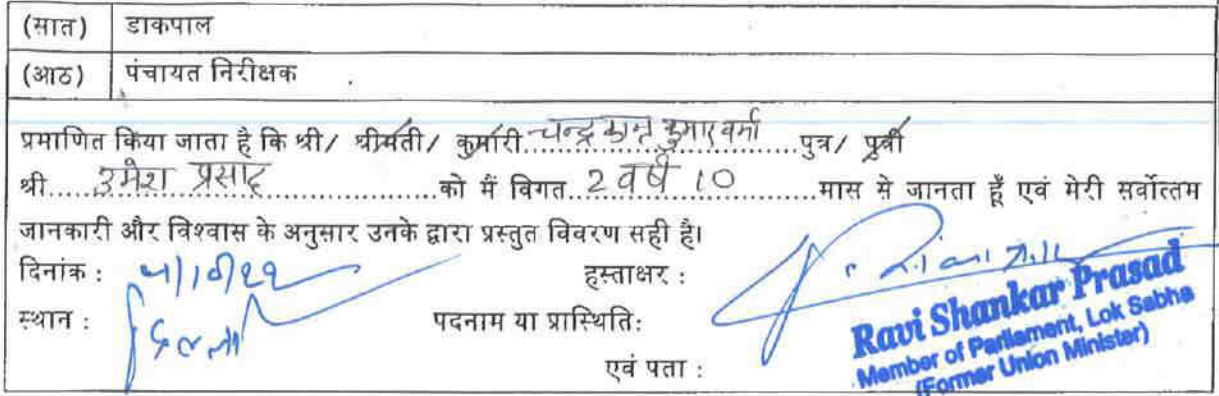 (सात) डाकपाल
(आठ) पंचायत निरीक्षक
प्रमाणित किया जाता है कि श्री/ श्रीमती/ कुमारी चन्द्र कान्त कुमार वर्मा पुत्र/ पुत्री
श्री उमेश प्रसाद को मैं विगत 2 वर्ष 10 मास से जानता हूँ एवं मेरी सर्वोत्तम
जानकारी और विश्वास के अनुसार उनके द्वारा प्रस्तुत विवरण सही है।
दिनांक : हस्ताक्षर :
स्थान : दिल्ली पदनाम या प्रास्थिति:
एवं पता :
Ravi Shankar Prasad
Member of Parliament, Lok Sabha
(Former Union Minister)